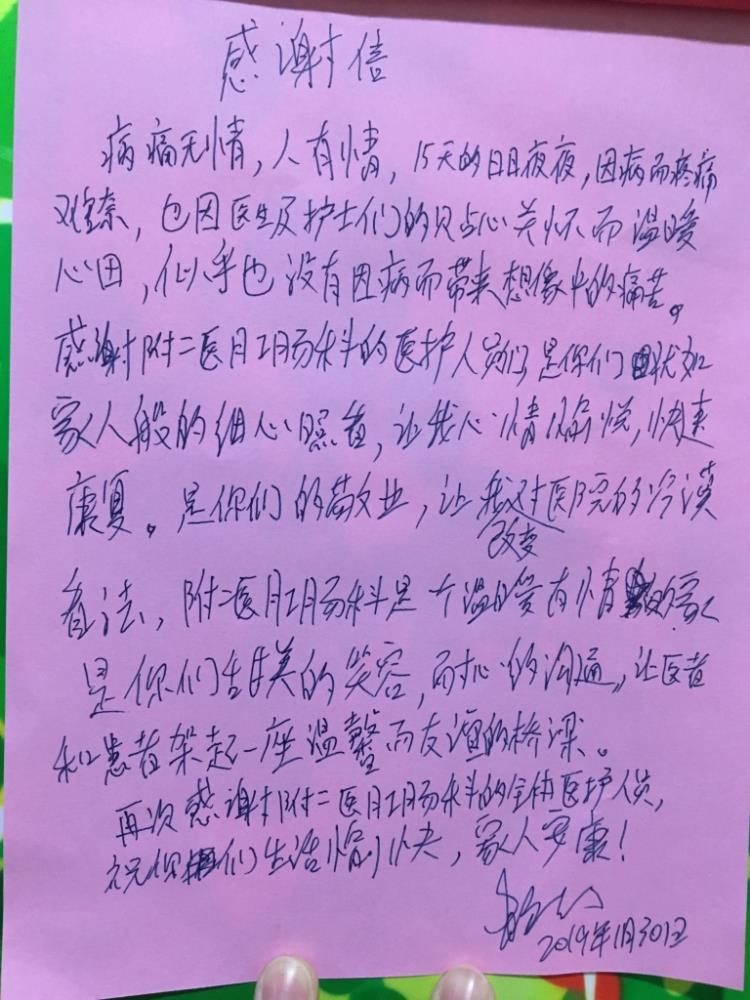 感谢信
病痛无情,人有情,15天的日日夜夜,因病而疼痛
难奈,也因医生及护士们的贴心关怀而温暖
心田,似乎也没有因病而带来想像中的痛苦。
感谢附二医肛肠科的医护人员们是你们状如
家人般的细心照看,让我心情愉悦,快速
康复。是你们的敬业,让我对医院的冷漠
改变
看法,附二医肛肠科是个温暖有情的家
是你们甜美的笑容,耐心的沟通,让医者
和患者架起一座温馨而友谊的桥梁。
再次感谢附二医肛肠科的全体医护人员,
祝你们生活愉快,家人安康!
2019年1月30日